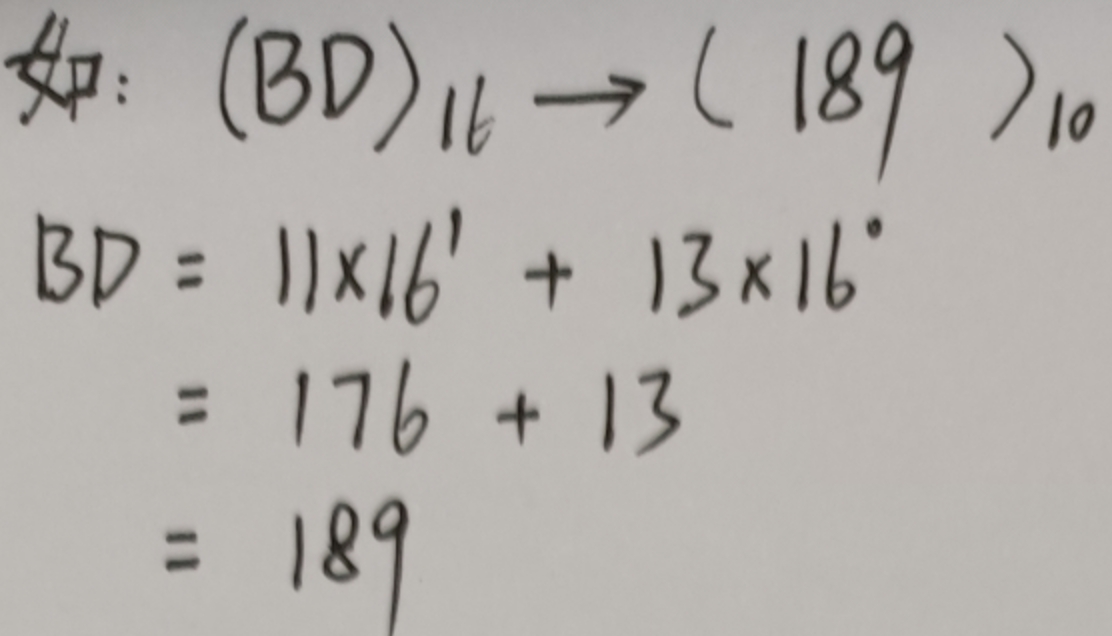 如: (BD)₁₆ → ( 189 )₁₀
BD = 11×16¹ + 13×16⁰
= 176 + 13
= 189